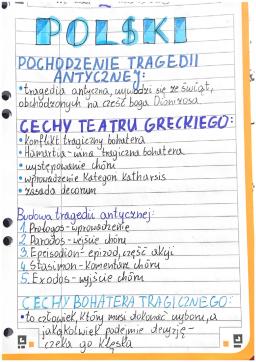 POLSKI
POCHODZENIE TRAGEDII
ANTYCZNEJ:
• tragedia antyczna, wywodzi się ze świąt,
obchodzonych na cześć boga Dionizosa
CECHY TEATRU GRECKIEGO:
• Konflikt tragiczny bohatera
• Hamartia - wina tragiczna bohatera
• występowanie chóru
• wprowadzenie Kategorii Katharsis
• zasada decorum
Budowa tragedii antycznej:
1. Prologos - wprowadzenie
2. Parodos - wejście chóru
3. Epeisodion - epizod, część akcji
4. Stasimon - Komentarz chóru
5. Exodos - wyjście chóru
CECHY BOHATERA TRAGICZNEGO:
• to człowiek, Który musi dokonać wyboru, a
jakąkolwiek podejmie decyzję -
czeka go Klęska